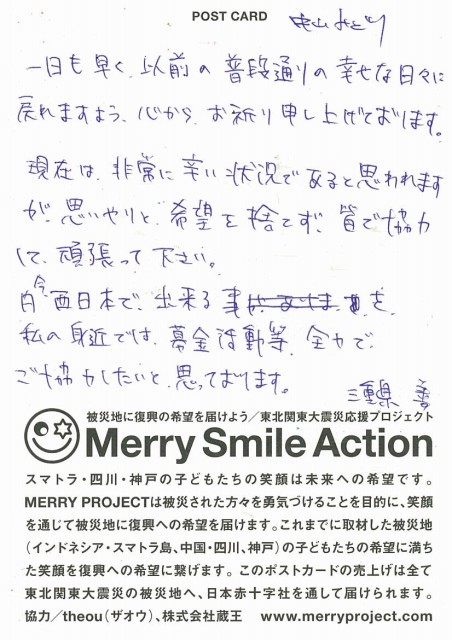 POST CARD
中山みどり
一日も早く、以前の普段通りの幸せな日々に
戻れますよう、心から、お祈り申し上げております。
現在は、非常に辛い状況であると思われます
が、思いやりと、希望を捨てず、皆で協力
して、頑張って下さい。
今西日本で、出来る事を、
私の身近では、募金活動等、全力で
ご協力したいと、思っております。
三重県
被災地に復興の希望を届けよう/東北関東大震災応援プロジェクト
Merry Smile Action
スマトラ・四川・神戸の子どもたちの笑顔は未来への希望です。
MERRY PROJECTは被災された方々を勇気づけることを目的に、笑顔
を通じて被災地に復興への希望を届けます。これまでに取材した被災地
(インドネシア・スマトラ島、中国・四川、神戸)の子どもたちの希望に満ち
た笑顔を復興への希望に繋げます。このポストカードの売上げは全て
東北関東大震災の被災地へ、日本赤十字社を通して届けられます。
協力/theou(ザオウ)、株式会社蔵王 www.merryproject.com